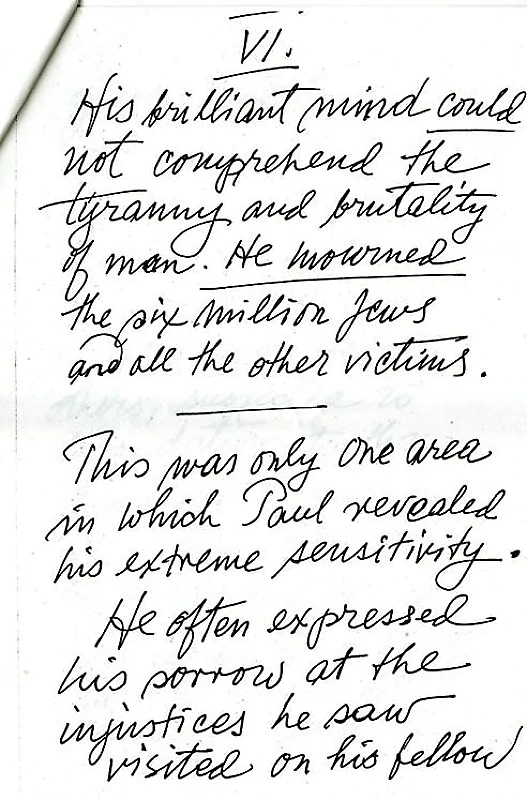 VI.
His brilliant mind could
not comprehend the
tyranny and brutality
of man. He mourned
the six million Jews
and all the other victims.
This was only one area
in which Paul revealed
his extreme sensitivity.
He often expressed
his sorrow at the
injustices he saw
visited on his fellow